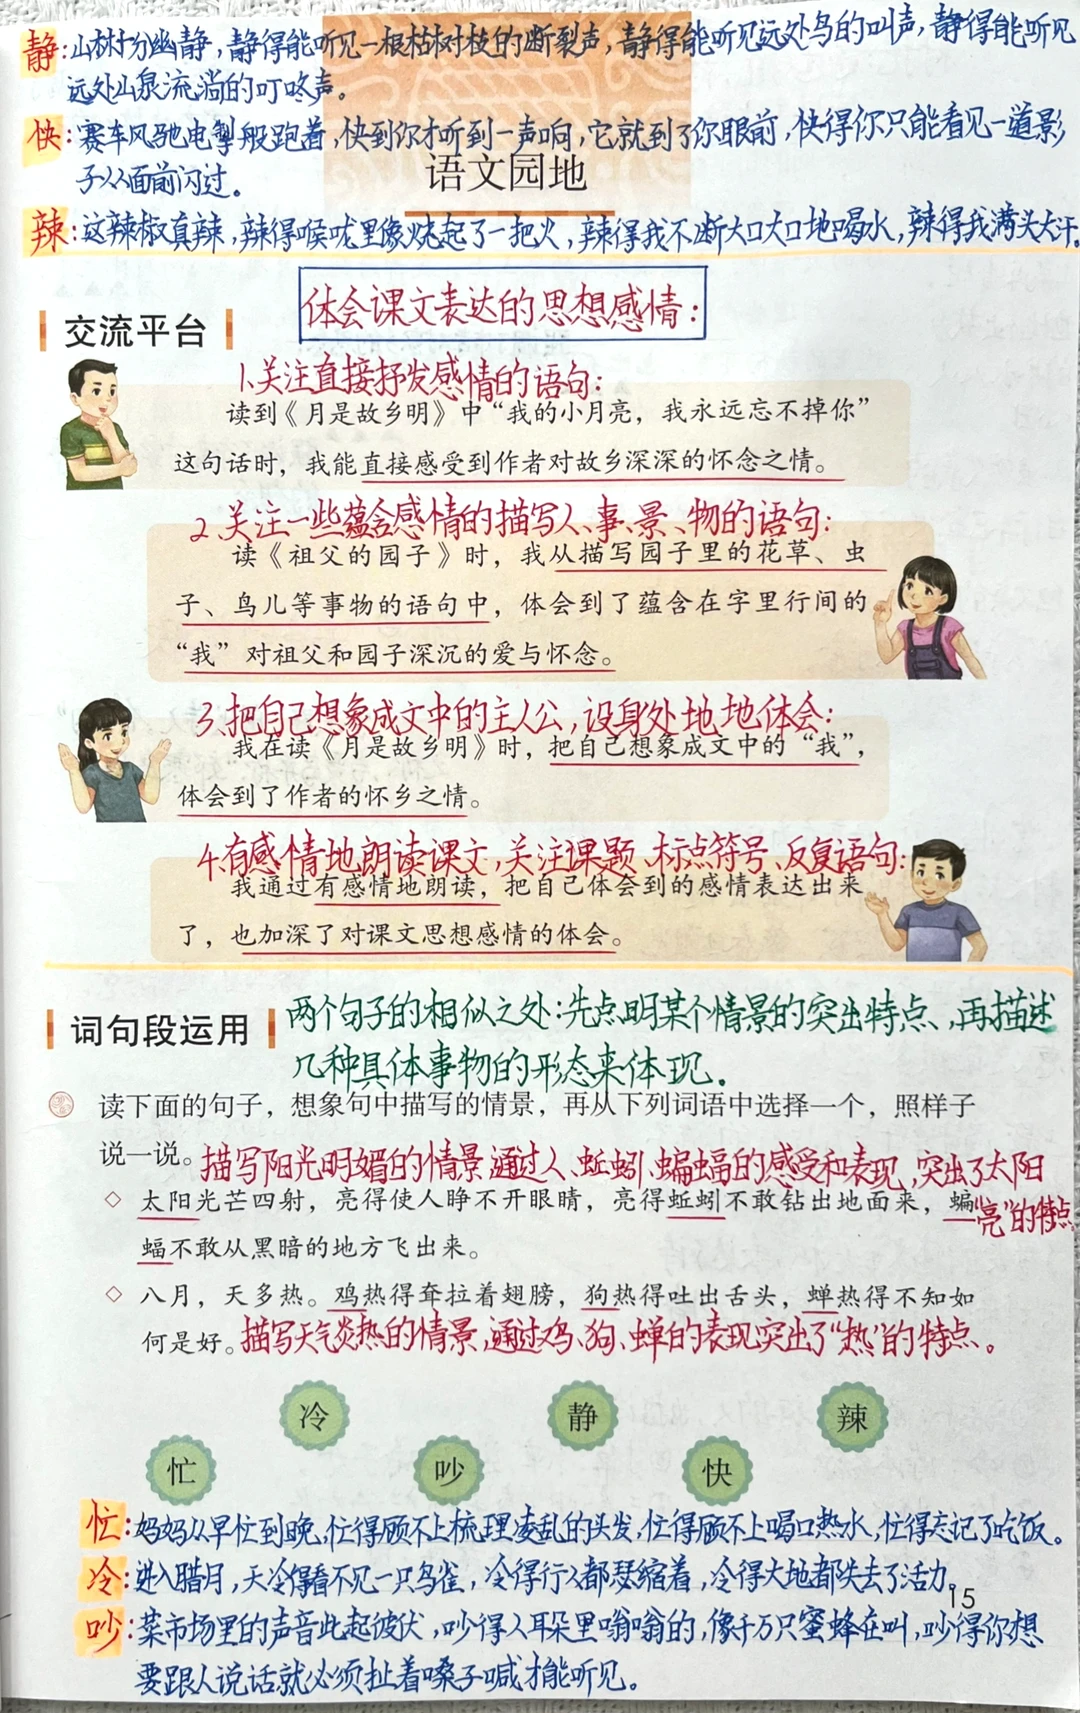 静:山林十分幽静,静得能听见一根枯树枝的断裂声,静得能听见远处鸟的叫声,静得能听见
远处山泉流淌的叮咚声。
快:赛车风驰电掣般跑着,快到你才听到一声响,它就到了你眼前,快得你只能看见一道影
子从面前闪过。
语文园地
辣:这辣椒真辣,辣得喉咙里像烧起了一把火,辣得我不断大口大口地喝水,辣得我满头大汗。
体会课文表达的思想感情:
交流平台
1.关注直接抒发感情的语句:
读到《月是故乡明》中“我的小月亮,我永远忘不掉你”
这句话时,我能直接感受到作者对故乡深深的怀念之情。
2.关注一些蕴含感情的描写人、事、景、物的语句:
读《祖父的园子》时,我从描写园子里的花草、虫
子、鸟儿等事物的语句中,体会到了蕴含在字里行间的
“我”对祖父和园子深沉的爱与怀念。
3.把自己想象成文中的主人公,设身处地地体会:
我在读《月是故乡明》时,把自己想象成文中的“我”,
体会到了作者的怀乡之情。
4.有感情地朗读课文,关注课题、标点符号、反复语句:
我通过有感情地朗读,把自己体会到的感情表达出来
了,也加深了对课文思想感情的体会。
词句段运用
两个句子的相似之处:先点明某个情景的突出特点,再描述
几种具体事物的形态来体现。
读下面的句子,想象句中描写的情景,再从下列词语中选择一个,照样子
说一说。
描写阳光明媚的情景,通过人、蚯蚓、蝙蝠的感受和表现,突出了太阳
“亮”的特点。
◇ 太阳光芒四射,亮得使人睁不开眼睛,亮得蚯蚓不敢钻出地面来,蝙
蝠不敢从黑暗的地方飞出来。
◇ 八月,天多热。鸡热得耷拉着翅膀,狗热得吐出舌头,蝉热得不知如
何是好。
描写天气炎热的情景,通过鸡、狗、蝉的表现突出了“热”的特点。
冷 静 辣
忙 吵 快
忙:妈妈从早忙到晚,忙得顾不上梳理凌乱的头发,忙得顾不上喝口热水,忙得忘记了吃饭。
冷:进入腊月,天冷得看不见一只鸟雀,冷得行人都瑟缩着,冷得大地都失去了活力。
15
吵:菜市场里的声音此起彼伏,吵得人耳朵里嗡嗡的,像千万只蜜蜂在叫,吵得你想
要跟人说话就必须扯着嗓子喊才能听见。